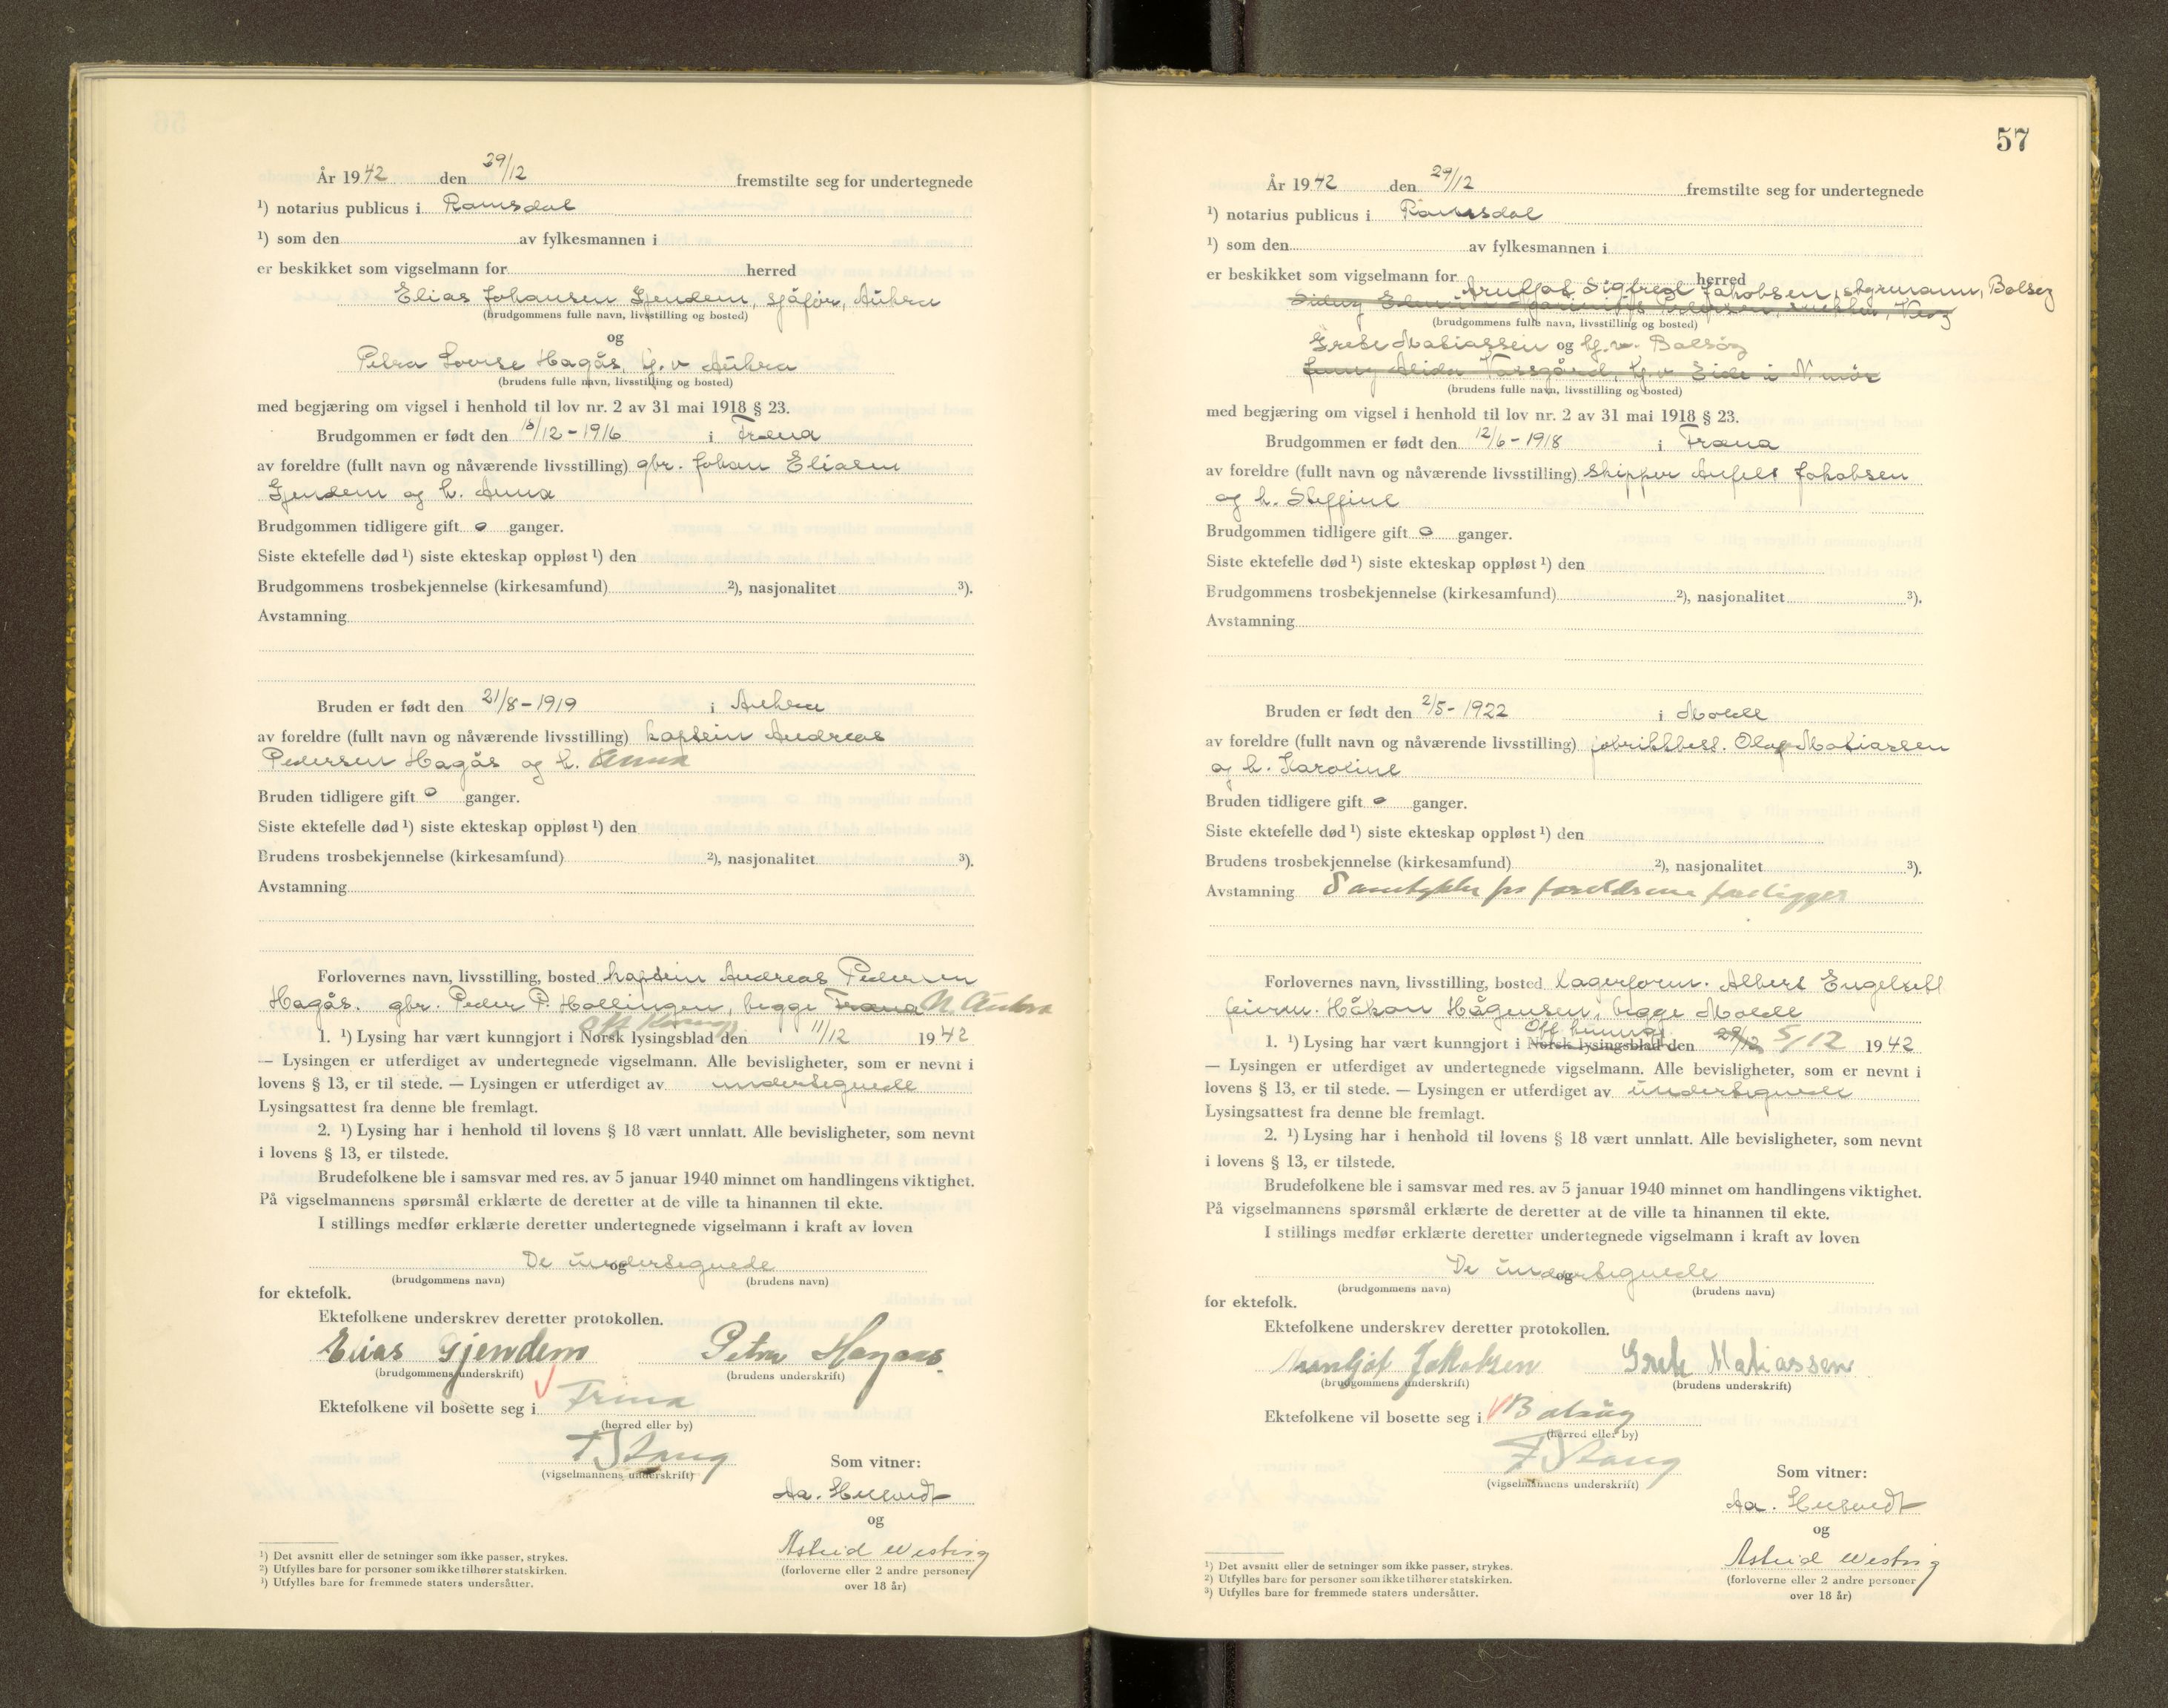 År 1942 den 29/12 fremstilte seg for undertegnede
¹) notarius publicus i Romsdal
¹) som den av fylkesmannen i
er beskikket som vigselmann for herred
Elias Johansen Gjendem, sjåfør, Aukra
(brudgommens fulle navn, livsstilling og bosted)
og
Petra Lovise Hagås, hj.v Aukra
(brudens fulle navn, livsstilling og bosted)
med begjæring om vigsel i henhold til lov nr. 2 av 31 mai 1918 § 23.
Brudgommen er født den /12-1916 i Fræna
av foreldre (fullt navn og nåværende livsstilling) gbr. Johan Eliasen
Gjendem og h. Anna
Brudgommen tidligere gift o ganger.
Siste ektefelle død ¹) siste ekteskap oppløst ¹) den
Brudgommens trosbekjennelse (kirkesamfund) ²), nasjonalitet ³).
Avstamning
Bruden er født den 21/8-1919 i Aukra
av foreldre (fullt navn og nåværende livsstilling) kaptein Andreas
Pedersen Hagås og h. Anna
Bruden tidligere gift o ganger.
Siste ektefelle død ¹) siste ekteskap oppløst ¹) den
Brudens trosbekjennelse (kirkesamfund) ²), nasjonalitet ³).
Avstamning
Forlovernes navn, livsstilling, bosted kaptein Andreas Pedersen
Hagås. gbr. Peder P. Hollingen, begge Fræna N. Aukra
1. ¹) Lysing har vært kunngjort i Norsk lysingsblad den 11/12 1942
— Lysingen er utferdiget av undertegnede vigselmann. Alle bevisligheter, som er nevnt i
lovens § 13, er til stede. — Lysingen er utferdiget av undertegnede
Lysingsattest fra denne ble fremlagt.
2. ¹) Lysing har i henhold til lovens § 18 vært unnlatt. Alle bevisligheter, som nevnt
i lovens § 13, er tilstede.
Brudefolkene ble i samsvar med res. av 5 januar 1940 minnet om handlingens viktighet.
På vigselmannens spørsmål erklærte de deretter at de ville ta hinannen til ekte.
I stillings medfør erklærte deretter undertegnede vigselmann i kraft av loven
De undertegnede
og
(brudgommens navn) (brudens navn)
for ektefolk.
Ektefolkene underskrev deretter protokollen.
Elias Gjendem Petra Hagaas
(brudgommens underskrift) (brudens underskrift)
Ektefolkene vil bosette seg i Fræna
(herred eller by)
F Stang
(vigselmannens underskrift)
Som vitner:
Aa. Husvedt
og
Astrid Westvig
(forloverne eller 2 andre personer
over 18 år)
¹) Det avsnitt eller de setninger som ikke passer, strykes.
²) Utfylles bare for personer som ikke tilhører statskirken.
³) Utfylles bare for fremmede staters undersåtter.
57
År 1942 den 29/12 fremstilte seg for undertegnede
¹) notarius publicus i Romsdal
¹) som den av fylkesmannen i
er beskikket som vigselmann for herred
Arnljot Sigfred Jakobsen, styrmann, Bolsøy
(brudgommens fulle navn, livsstilling og bosted)
Grete Matiassen og hj.v. Bolsøy
Jenny Alida Vassgård, hj.v Eide i N. møre
(brudens fulle navn, livsstilling og bosted)
med begjæring om vigsel i henhold til lov nr. 2 av 31 mai 1918 § 23.
Brudgommen er født den 12/6-1918 i Fræna
av foreldre (fullt navn og nåværende livsstilling) skipper Jakobsen
og h. Steffine
Brudgommen tidligere gift o ganger.
Siste ektefelle død ¹) siste ekteskap oppløst ¹) den
Brudgommens trosbekjennelse (kirkesamfund) ²), nasjonalitet ³).
Avstamning
Bruden er født den 2/5-1922 i Molde
av foreldre (fullt navn og nåværende livsstilling) fabrikkbest. Olaf Matiassen
og h. Karoline
Bruden tidligere gift o ganger.
Siste ektefelle død ¹) siste ekteskap oppløst ¹) den
Brudens trosbekjennelse (kirkesamfund) ²), nasjonalitet ³).
Avstamning Samtykke fra foreldrene foreligger
Forlovernes navn, livsstilling, bosted Lagerform. Albert
feierm. Håkon Hågensen, begge Molde
Off. kunngj.
1. ¹) Lysing har vært kunngjort i Norsk lysingsblad den 29/12 5/12 1942
— Lysingen er utferdiget av undertegnede vigselmann. Alle bevisligheter, som er nevnt i
lovens § 13, er til stede. — Lysingen er utferdiget av undertegnede
Lysingsattest fra denne ble fremlagt.
2. ¹) Lysing har i henhold til lovens § 18 vært unnlatt. Alle bevisligheter, som nevnt
i lovens § 13, er tilstede.
Brudefolkene ble i samsvar med res. av 5 januar 1940 minnet om handlingens viktighet.
På vigselmannens spørsmål erklærte de deretter at de ville ta hinannen til ekte.
I stillings medfør erklærte deretter undertegnede vigselmann i kraft av loven
De undertegnede
og
(brudgommens navn) (brudens navn)
for ektefolk.
Ektefolkene underskrev deretter protokollen.
Arnljot Jakobsen Grete Matiassen
(brudgommens underskrift) (brudens underskrift)
Ektefolkene vil bosette seg i Bolsøy
(herred eller by)
F Stang
(vigselmannens underskrift)
Som vitner:
Aa. Husvedt
og
Astrid Westvig
(forloverne eller 2 andre personer
over 18 år)
¹) Det avsnitt eller de setninger som ikke passer, strykes.
²) Utfylles bare for personer som ikke tilhører statskirken.
³) Utfylles bare for fremmede staters undersåtter.